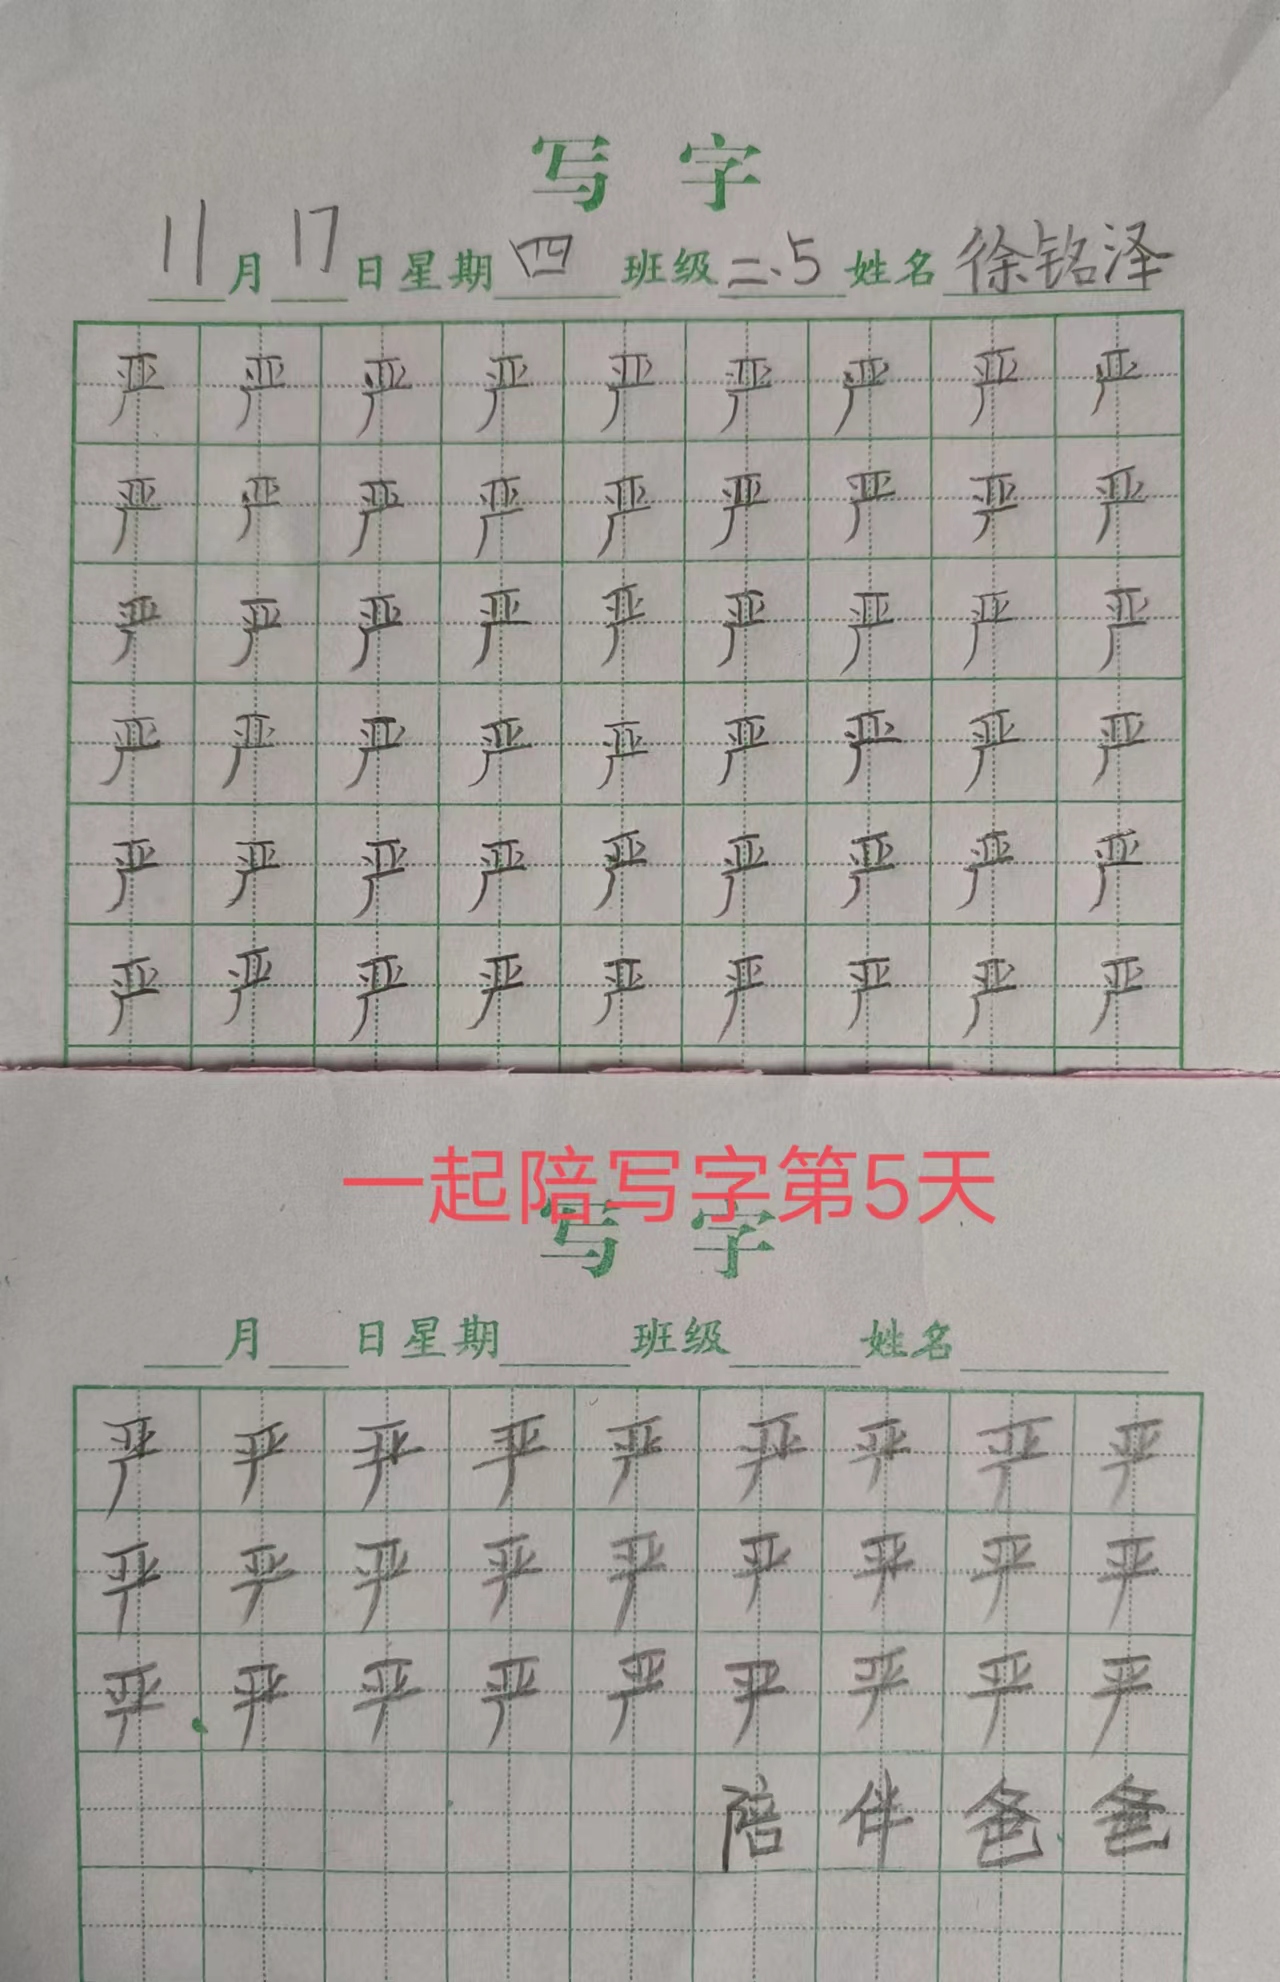 写 字
11月17日星期四 班级二、5 姓名徐铭泽
严 严 严 严 严 严 严 严 严
严 严 严 严 严 严 严 严 严
严 严 严 严 严 严 严 严 严
严 严 严 严 严 严 严 严 严
严 严 严 严 严 严 严 严 严
严 严 严 严 严 严 严 严 严
一起陪写字第5天
写 字
月 日星期 班级 姓名
严 严 严 严 严 严 严 严 严
严 严 严 严 严 严 严 严 严
严 严 严 严 严 严 严 严 严
陪 伴 爸 爸